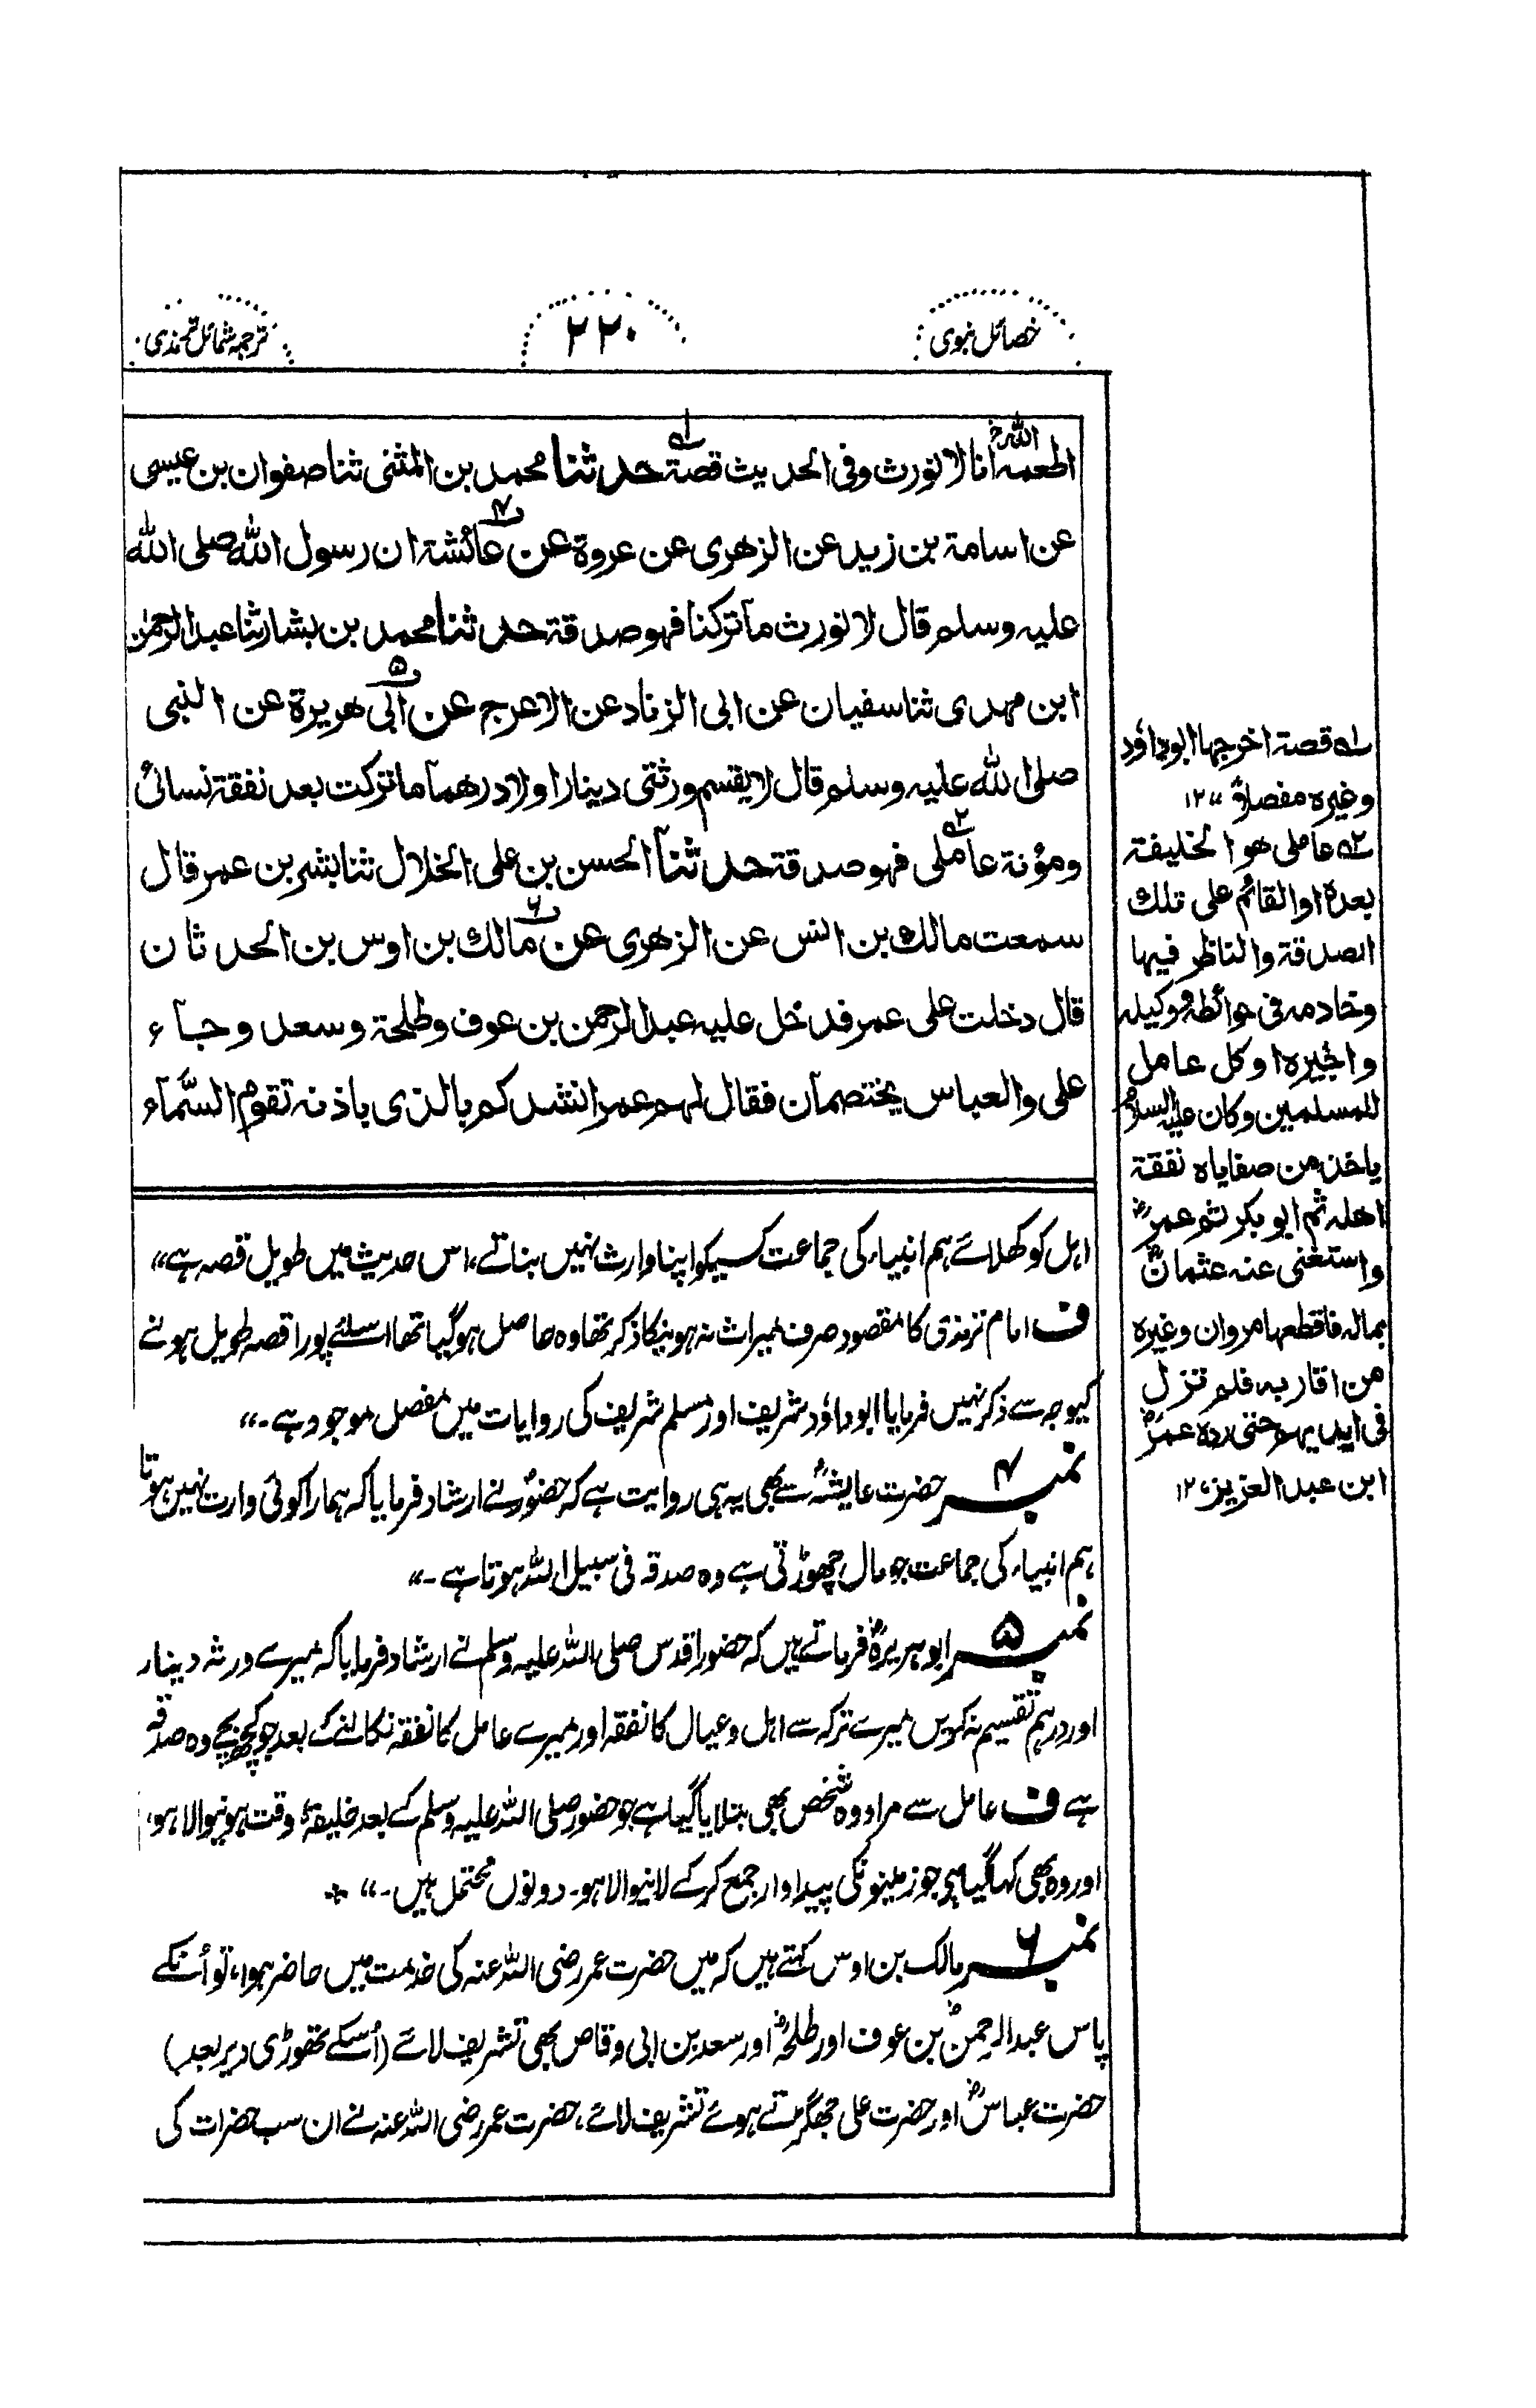 خصائل نبوی
۲۲۰
ترجمہ شمائل ترمذی
اطعمه الله انا لا نورث وفى الحديث قصة حدثنا محمد بن المثنى ثنا صفوان بن عيسى
عن اسامة بن زيد عن الزهرى عن عروة عن عائشة ان رسول الله صلى الله
عليه وسلم قال لا نورث ما تركنا فهو صدقة حدثنا محمد بن بشار ثنا عبد الرحمن
ابن مهدى ثنا سفيان عن ابى الزناد عن الاعرج عن ابى هريرة عن النبى
صلى الله عليه وسلم قال لا يقسم ورثتى دينارا ولا درهما ما تركت بعد نفقة نسائى
ومؤنة عاملى فهو صدقة حدثنا الحسن بن على الخلال ثنا بشر بن عمر قال
سمعت مالك بن انس عن الزهرى عن مالك بن اوس بن الحدثان
قال دخلت على عمر فدخل عليه عبد الرحمن بن عوف وطلحة وسعد وجآء
على والعباس يختصمان فقال لهم عمر انشدكم بالذى باذنه تقوم السمآء
اہل کو کھلائے ہم انبیاء کی جماعت کسیکو اپنا وارث نہیں بناتے، اس حدیث میں طویل قصہ ہے،،
ف امام ترمذی کا مقصود صرف میراث نہ ہونیکا ذکر تھا وہ حاصل ہوگیا تھا اسلئے پورا قصہ طویل ہونے
کیوجہ سے ذکر نہیں فرمایا ابوداؤد شریف اور مسلم شریف کی روایات میں مفصل موجود ہے۔،،
نمبر ۴ حضرت عایشہؓ سے بھی یہ ہی روایت ہے کہ حضورؐ نے ارشاد فرمایا کہ ہمارا کوئی وارث نہیں ہوتا
ہم انبیاء کی جماعت جو مال چھوڑتی ہے وہ صدقہ فی سبیل اللہ ہوتا ہے۔،،
نمبر ۵ ابو ہریرہؓ فرماتے ہیں کہ حضور اقدس صلی اللہ علیہ وسلم نے ارشاد فرمایا کہ میرے ورثہ دینار
اور درہم تقسیم نہ کریں میرے ترکہ سے اہل و عیال کا نفقہ اور میرے عامل کا نفقہ نکالنے کے بعد جو کچھ بچے وہ صدقہ
ہے ف عامل سے مراد وہ شخص بھی بتلایا گیا ہے جو حضور صلی اللہ علیہ وسلم کے بعد خلیفۂ وقت ہونیوالا ہو،
اور وہ بھی کہا گیا ہے جو زمینونکی پیداوار جمع کرکے لانیوالا ہو۔ دونوں محتمل ہیں۔،،
نمبر ۶ مالک بن اوس کہتے ہیں کہ میں حضرت عمر رضی اللہ عنہ کی خدمت میں حاضر ہوا، تو اُنکے
پاس عبدالرحمنؓ بن عوف اور طلحہؓ اور سعد بن ابی وقاص بھی تشریف لائے (اُسکے تھوڑی دیر بعد)
حضرت عباسؓ اور حضرت علی جھگڑتے ہوئے تشریف لائے، حضرت عمر رضی اللہ عنہ نے ان سب حضرات کی
؂۱ قصة اخرجها ابوداؤد
وغيره مفصلاً ،، ۱۲
؂۲ عاملى هو الخليفة
بعده او القائم على تلك
الصدقة والناظر فيها
وخادمه فى حوائطه ووكيله
واجيره او كل عامل
للمسلمين وكان عليه السلام
ياخذ من صفاياه نفقة
اهله ثم ابو بكر ثم عمرؓ
واستغنى عنه عثمانؓ
بماله فاقطعها مروان وغيره
من اقاربه فلم تزل
فى ايديهم حتى رده عمرؓ
ابن عبد العزيز، ۱۲